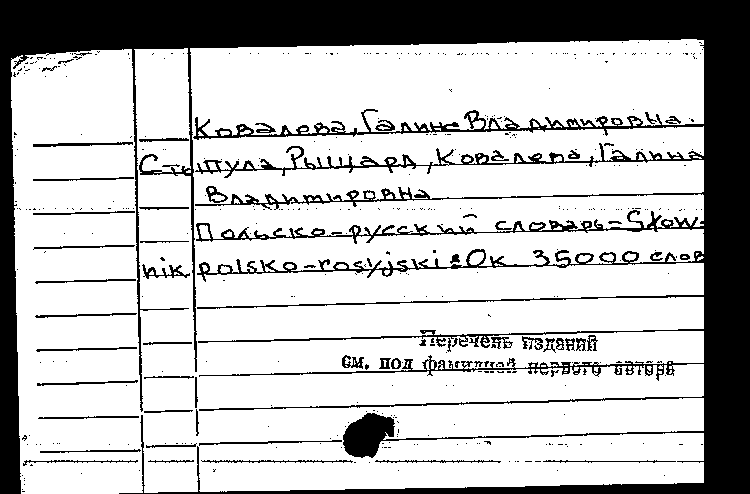 Ковалева, Галина Владимировна.
Стыпула, Рышард, Ковалева, Галина
Владимировна
Польско-русский словарь=Słow-
nik polsko-rosyjski: Ок. 35000 слов
Перечень изданий
см. под фамилией первого автора